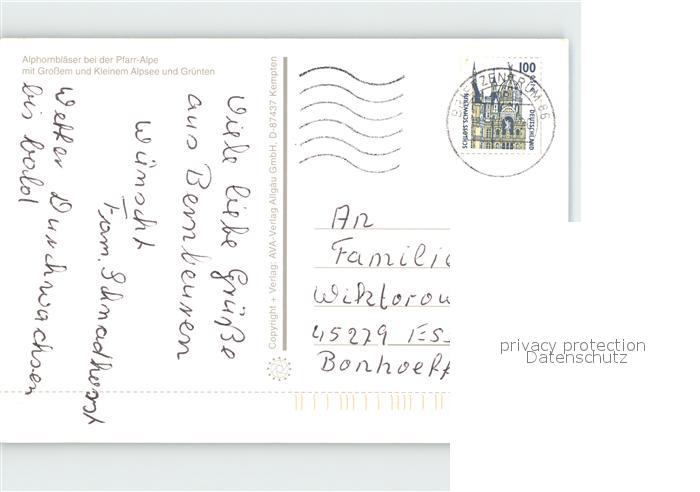 Alphornbläser bei der Pfarr-Alpe
mit Großem und Kleinem Alpsee und Grünten
Viele liebe Grüße
aus Bernbeuren
wünscht
Fam. Schnadhorst
Wetter Durchwachsen
bis bald
Copyright + Verlag: AVA-Verlag Allgäu GmbH, D-87437 Kempten
100
DEUTSCHLAND
SCHLOSS SCHWERIN
BRIEFZENTRUM 86
An
Familie
Wiktorow
45279 ESS
Bonhoeff
privacy protection
Datenschutz